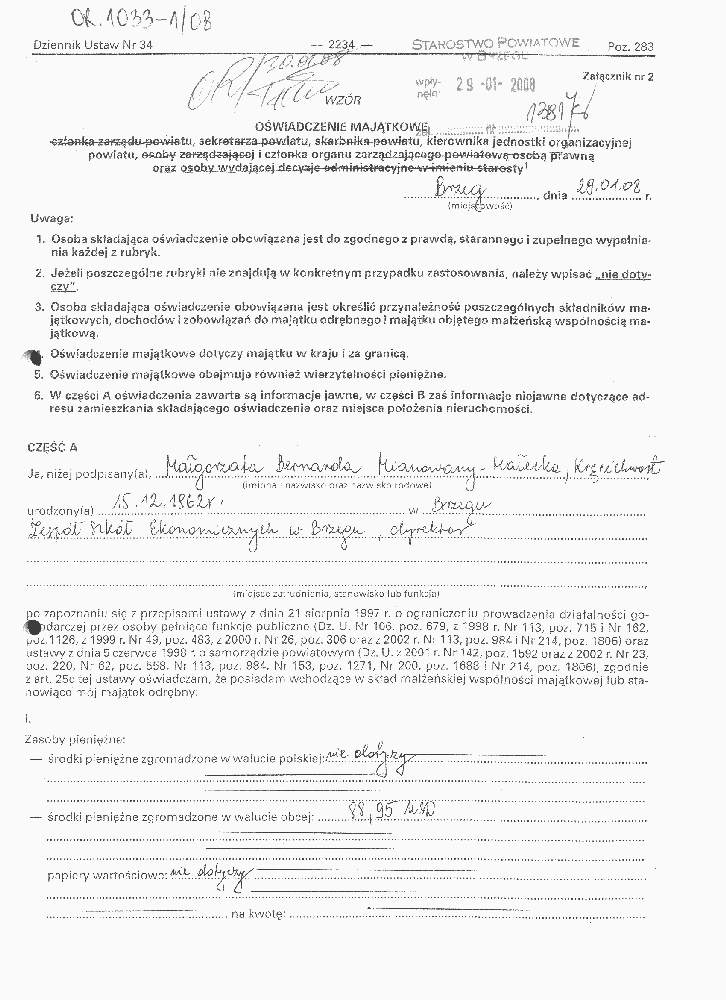 OR.1033-1/08
Dziennik Ustaw Nr 34 — 2234 — Poz. 283
STAROSTWO POWIATOWE
W BRZEGU
wpły-
nęło: 29-01-2008
Załącznik nr 2
30.01.08
WZÓR
OŚWIADCZENIE MAJĄTKOWE
członka zarządu powiatu, sekretarza powiatu, skarbnika powiatu, kierownika jednostki organizacyjnej
powiatu, osoby zarządzającej i członka organu zarządzającego powiatową osobą prawną
oraz osoby wydającej decyzje administracyjne w imieniu starosty¹
Brzeg, dnia 29.01.08 r.
(miejscowość)
Uwaga:
1. Osoba składająca oświadczenie obowiązana jest do zgodnego z prawdą, starannego i zupełnego wypełnie-
nia każdej z rubryk.
2. Jeżeli poszczególne rubryki nie znajdują w konkretnym przypadku zastosowania, należy wpisać „nie doty-
czy”.
3. Osoba składająca oświadczenie obowiązana jest określić przynależność poszczególnych składników ma-
jątkowych, dochodów i zobowiązań do majątku odrębnego i majątku objętego małżeńską wspólnością ma-
jątkową.
Oświadczenie majątkowe dotyczy majątku w kraju i za granicą.
5. Oświadczenie majątkowe obejmuje również wierzytelności pieniężne.
6. W części A oświadczenia zawarte są informacje jawne, w części B zaś informacje niejawne dotyczące ad-
resu zamieszkania składającego oświadczenie oraz miejsca położenia nieruchomości.
CZĘŚĆ A
Ja, niżej podpisany(a), Małgorzata Bernarda Mianowany-Małecka,
(imiona i nazwisko oraz nazwisko rodowe)
urodzony(a) 15.12.1962r. w Brzegu
Zespół Szkół Ekonomicznych w Brzegu, dyrektor
(miejsce zatrudnienia, stanowisko lub funkcja)
po zapoznaniu się z przepisami ustawy z dnia 21 sierpnia 1997 r. o ograniczeniu prowadzenia działalności go-
spodarczej przez osoby pełniące funkcje publiczne (Dz. U. Nr 106, poz. 679, z 1998 r. Nr 113, poz. 715 i Nr 162,
poz. 1126, z 1999 r. Nr 49, poz. 483, z 2000 r. Nr 26, poz. 306 oraz z 2002 r. Nr 113, poz. 984 i Nr 214, poz. 1806) oraz
ustawy z dnia 5 czerwca 1998 r. o samorządzie powiatowym (Dz. U. z 2001 r. Nr 142, poz. 1592 oraz z 2002 r. Nr 23,
poz. 220, Nr 62, poz. 558, Nr 113, poz. 984, Nr 153, poz. 1271, Nr 200, poz. 1688 i Nr 214, poz. 1806), zgodnie
z art. 25c tej ustawy oświadczam, że posiadam wchodzące w skład małżeńskiej wspólności majątkowej lub sta-
nowiące mój majątek odrębny:
I.
Zasoby pieniężne:
— środki pieniężne zgromadzone w walucie polskiej: nie dotyczy
— środki pieniężne zgromadzone w walucie obcej: 88,95 USD
papiery wartościowe: nie dotyczy
na kwotę: